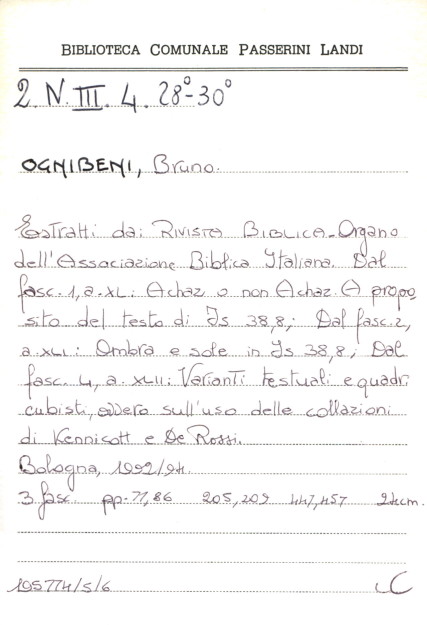 BIBLIOTECA COMUNALE PASSERINI LANDI
2. N. III. 4. 28°-30°
OGNIBENI, Bruno.
Estratti da: RIVISTA BIBLICA-Organo
dell'Associazione Biblica Italiana. Dal
fasc. 1, a. XL: Achaz o non Achaz. A propo
sito del testo di Is 38,8; Dal fasc. 2,
a. XLI: Ombra e sole in Is 38,8; Dal
fasc. 4, a. XLII: Varianti testuali e quadri
cubisti, ovvero sull'uso delle collazioni
di Kennicott e De Rossi.
Bologna, 1992/94.
3 fasc. pp. 77,86 205,209 447,457 24cm.
195774/5/6